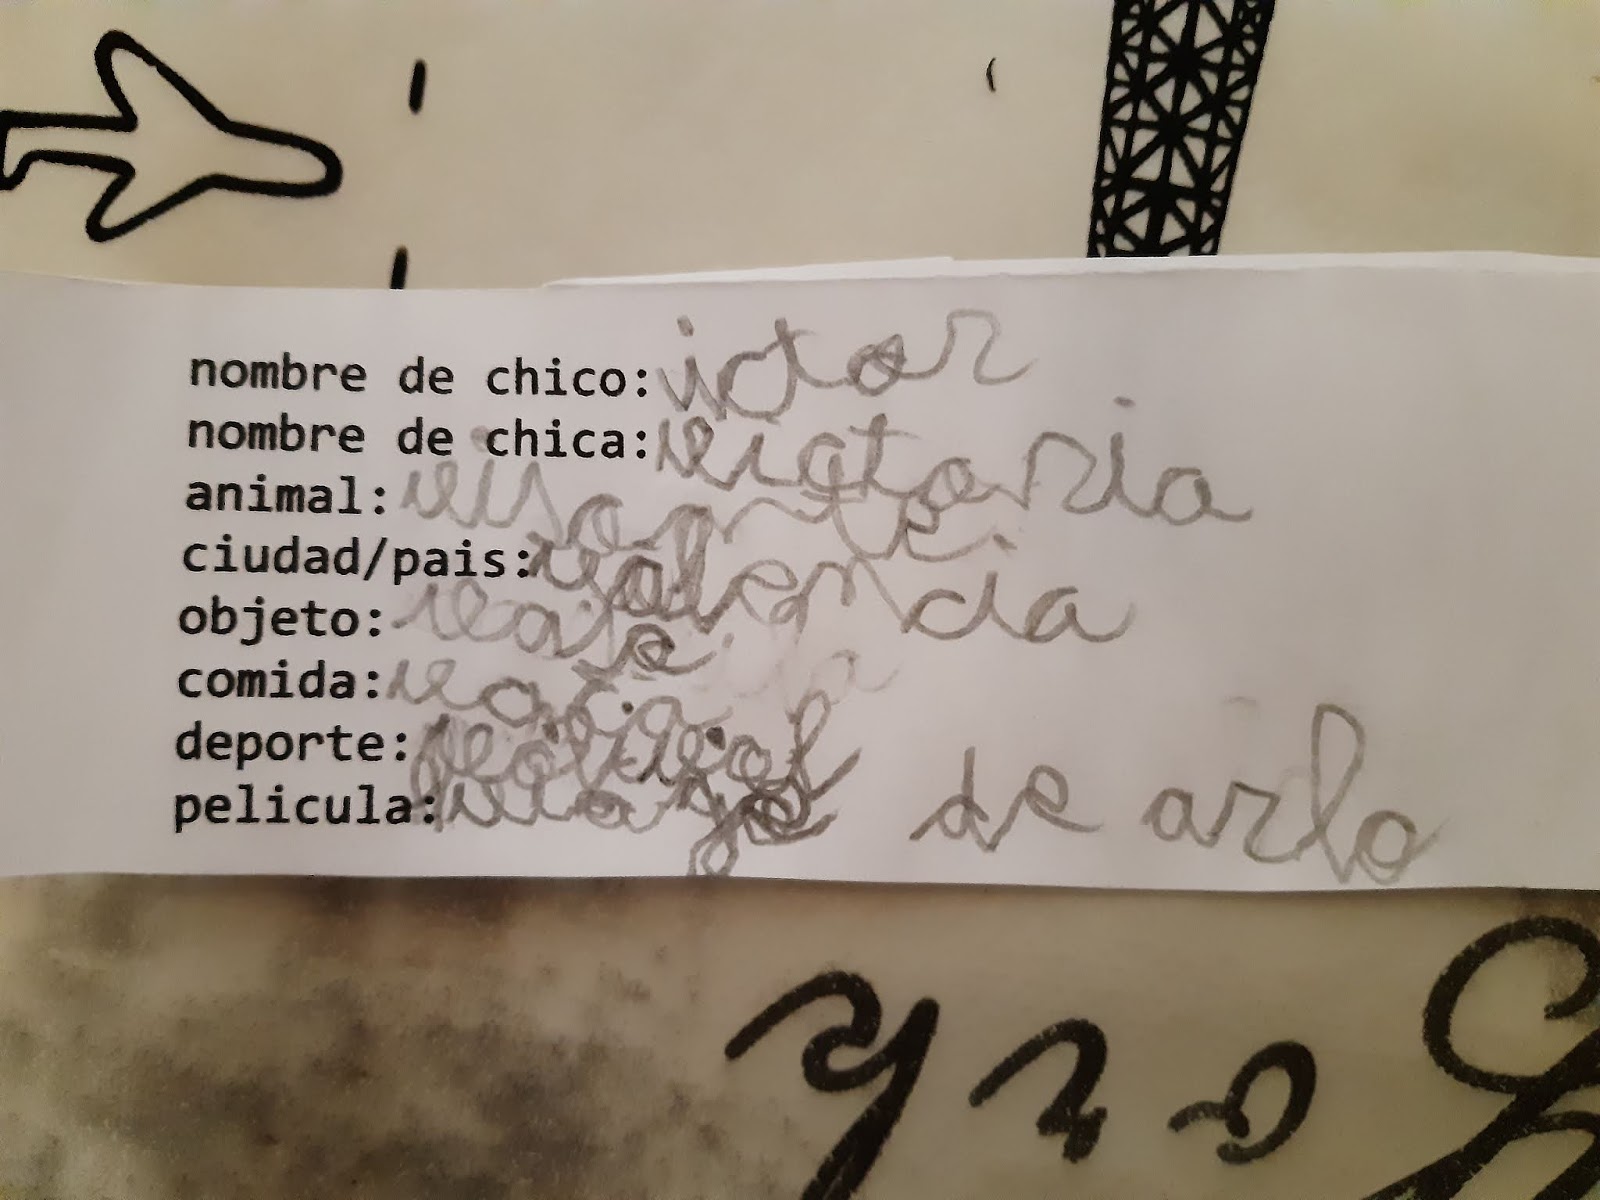 nombre de chico: victor
nombre de chica: victoria
animal: visonte
ciudad/pais: valencia
objeto:
comida:
deporte:
pelicula: viaje de arlo